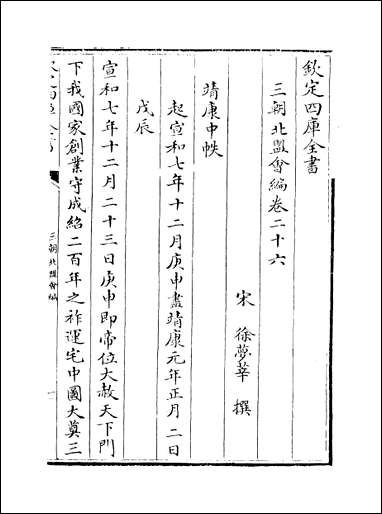 欽定四庫全書
三朝北盟會編卷二十六
宋 徐夢莘 撰
靖康中帙
起宣和七年十二月庚申盡靖康元年正月二日
戊辰
宣和七年十二月二十三日庚申即帝位大赦天下門
下我國家創業守成紹二百年之祚運宅中國大奠三
三朝北盟會編